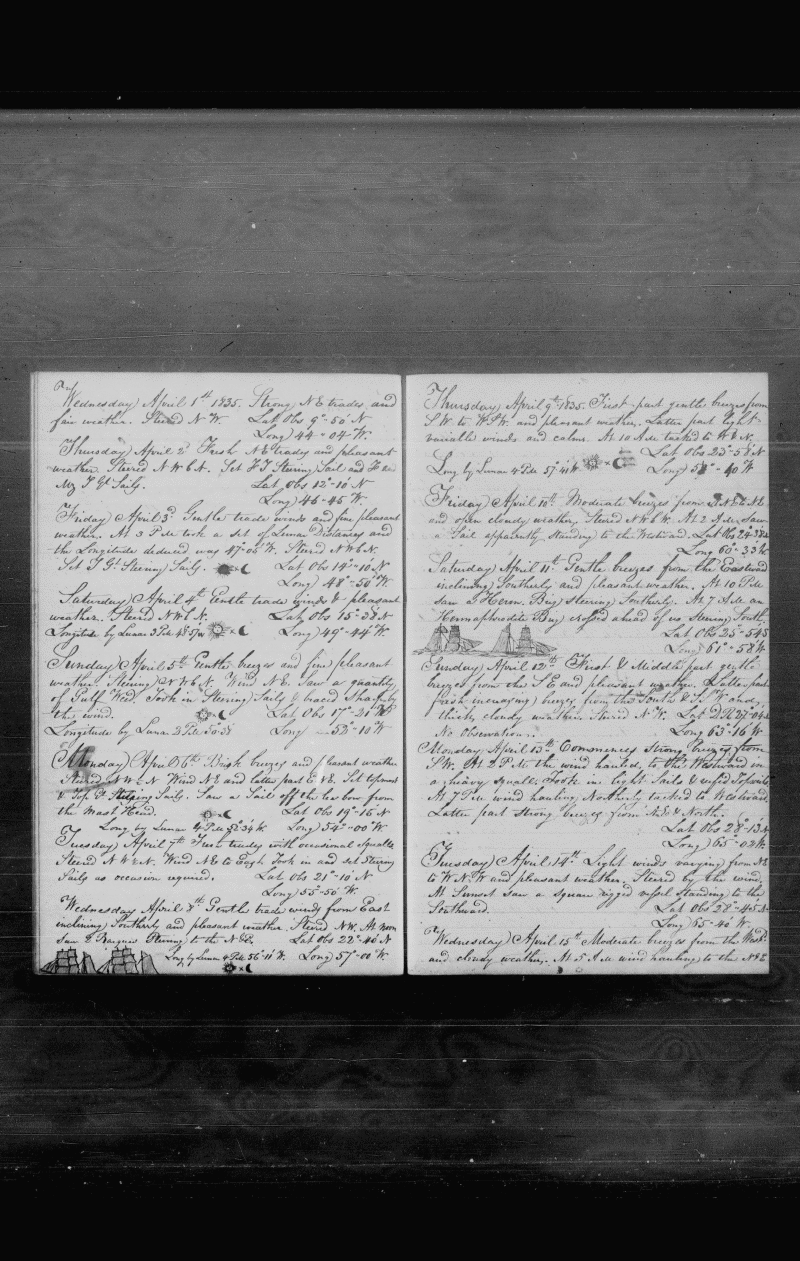 Wednesday April 1st 1835. Strong NE trades and
fair weather. Steered N W. Lat Obs 9°-50' N
Long 44°-04' W.
Thursday April 2d Fresh NE trades and pleasant
weather. Steered N W b N. Set Steering Sail and
Lat Obs 12°-10 N
Long 46-45 W.
Friday April 3d Gentle trade winds and fine pleasant
weather. At 3 P M took a set of Lunar Distances and
the Longitude deduced was 47°-00' W. Steered N W b N.
Set T Gt Steering Sails. Lat Obs 14°-10 N
Long 48°-50' W.
Saturday April 4th Gentle trade winds & pleasant
weather. Steered N W b N. Lat Obs 15°-38 N
Longitude by Lunar 3 P M Long 49°-44' W.
Sunday April 5th Gentle breezes and fine pleasant
weather Steering N W b N. Wind N E. Saw a quantity
of Gulf Weed. Took in Steering Sails & braced Sharp by
the wind. Lat Obs 17°-21' N
Longitude by Lunar 2 P M Long 52°-10 W
Monday April 6th Brisk breezes and pleasant weather
Steered N W b N Wind N E and latter part E N E. Set topmast
& Top Gt Steering Sails. Saw a Sail off the lee bow from
the Mast Head. Lat Obs 19°-15 N
Long by Lunar 4 P M 52°34 W Long 54°-00' W
Tuesday April 7th Fresh trades with occasional Squalls
Steered N W b N. Wind N E to took in and set Steering
Sails as occasion required. Lat Obs 21°-10 N
Long 55°-50' W.
Wednesday April 8th Gentle trade winds from East
inclining Southerly and pleasant weather Steered N W. At noon
Saw 2 Steering to the N E. Lat Obs 22°-40 N
Long by Lunar 4 P M 56°11 W. Long 57°-00' W.
Thursday April 9th 1835. First part gentle breezes from
S W to W S W. and pleasant weather. Latter part light
variable winds and calms. At 10 A M tacked to
Lat Obs 23°-58 N
Long by Lunar 4 P M 57°41 W Long 40 W
Friday April 10th Moderate breezes from
and open cloudy weather. Steered N W b W. At 2 A M Saw
a Sail apparently Standing to the Westward. Lat Obs 24°
Long 60°-33 W
Saturday April 11th Gentle breezes from the Eastward
inclining Southerly and pleasant weather. At 10 P M
saw a Herm. Brig steering Southerly. At 7 A M an
Hermaphrodite Brig crossed ahead of us Steering South.
Lat Obs 25°-54
Long 61°-58 W
Sunday April 12th First & Middle part gentle
breezes from the S E and pleasant weather. Latter part
fresh increasing breezes from the South & S W and
thick, cloudy weather Steered N W. Lat 27°-04
No Observation. Long 63°-16 W
Monday April 13th Commences Strong breezes from
S W. At 2 P M the wind hauled to the Westward in
a heavy Squall. Took in light Sails & reefed Topsails
At 7 P M wind hauling Northerly tacked to Westward.
Latter part strong breezes from & North.
Lat Obs 28°-13
Long 65°-02 W
Tuesday April 14th Light winds varying from
to W N W and pleasant weather. Steered by the wind.
At Sunset saw a square rigged vessel Standing to the
Southward. Lat Obs 28°-45
Long 65°-40 W
Wednesday April 15th Moderate breezes from the West
and cloudy weather. At 5 A M wind hauling to the N & E